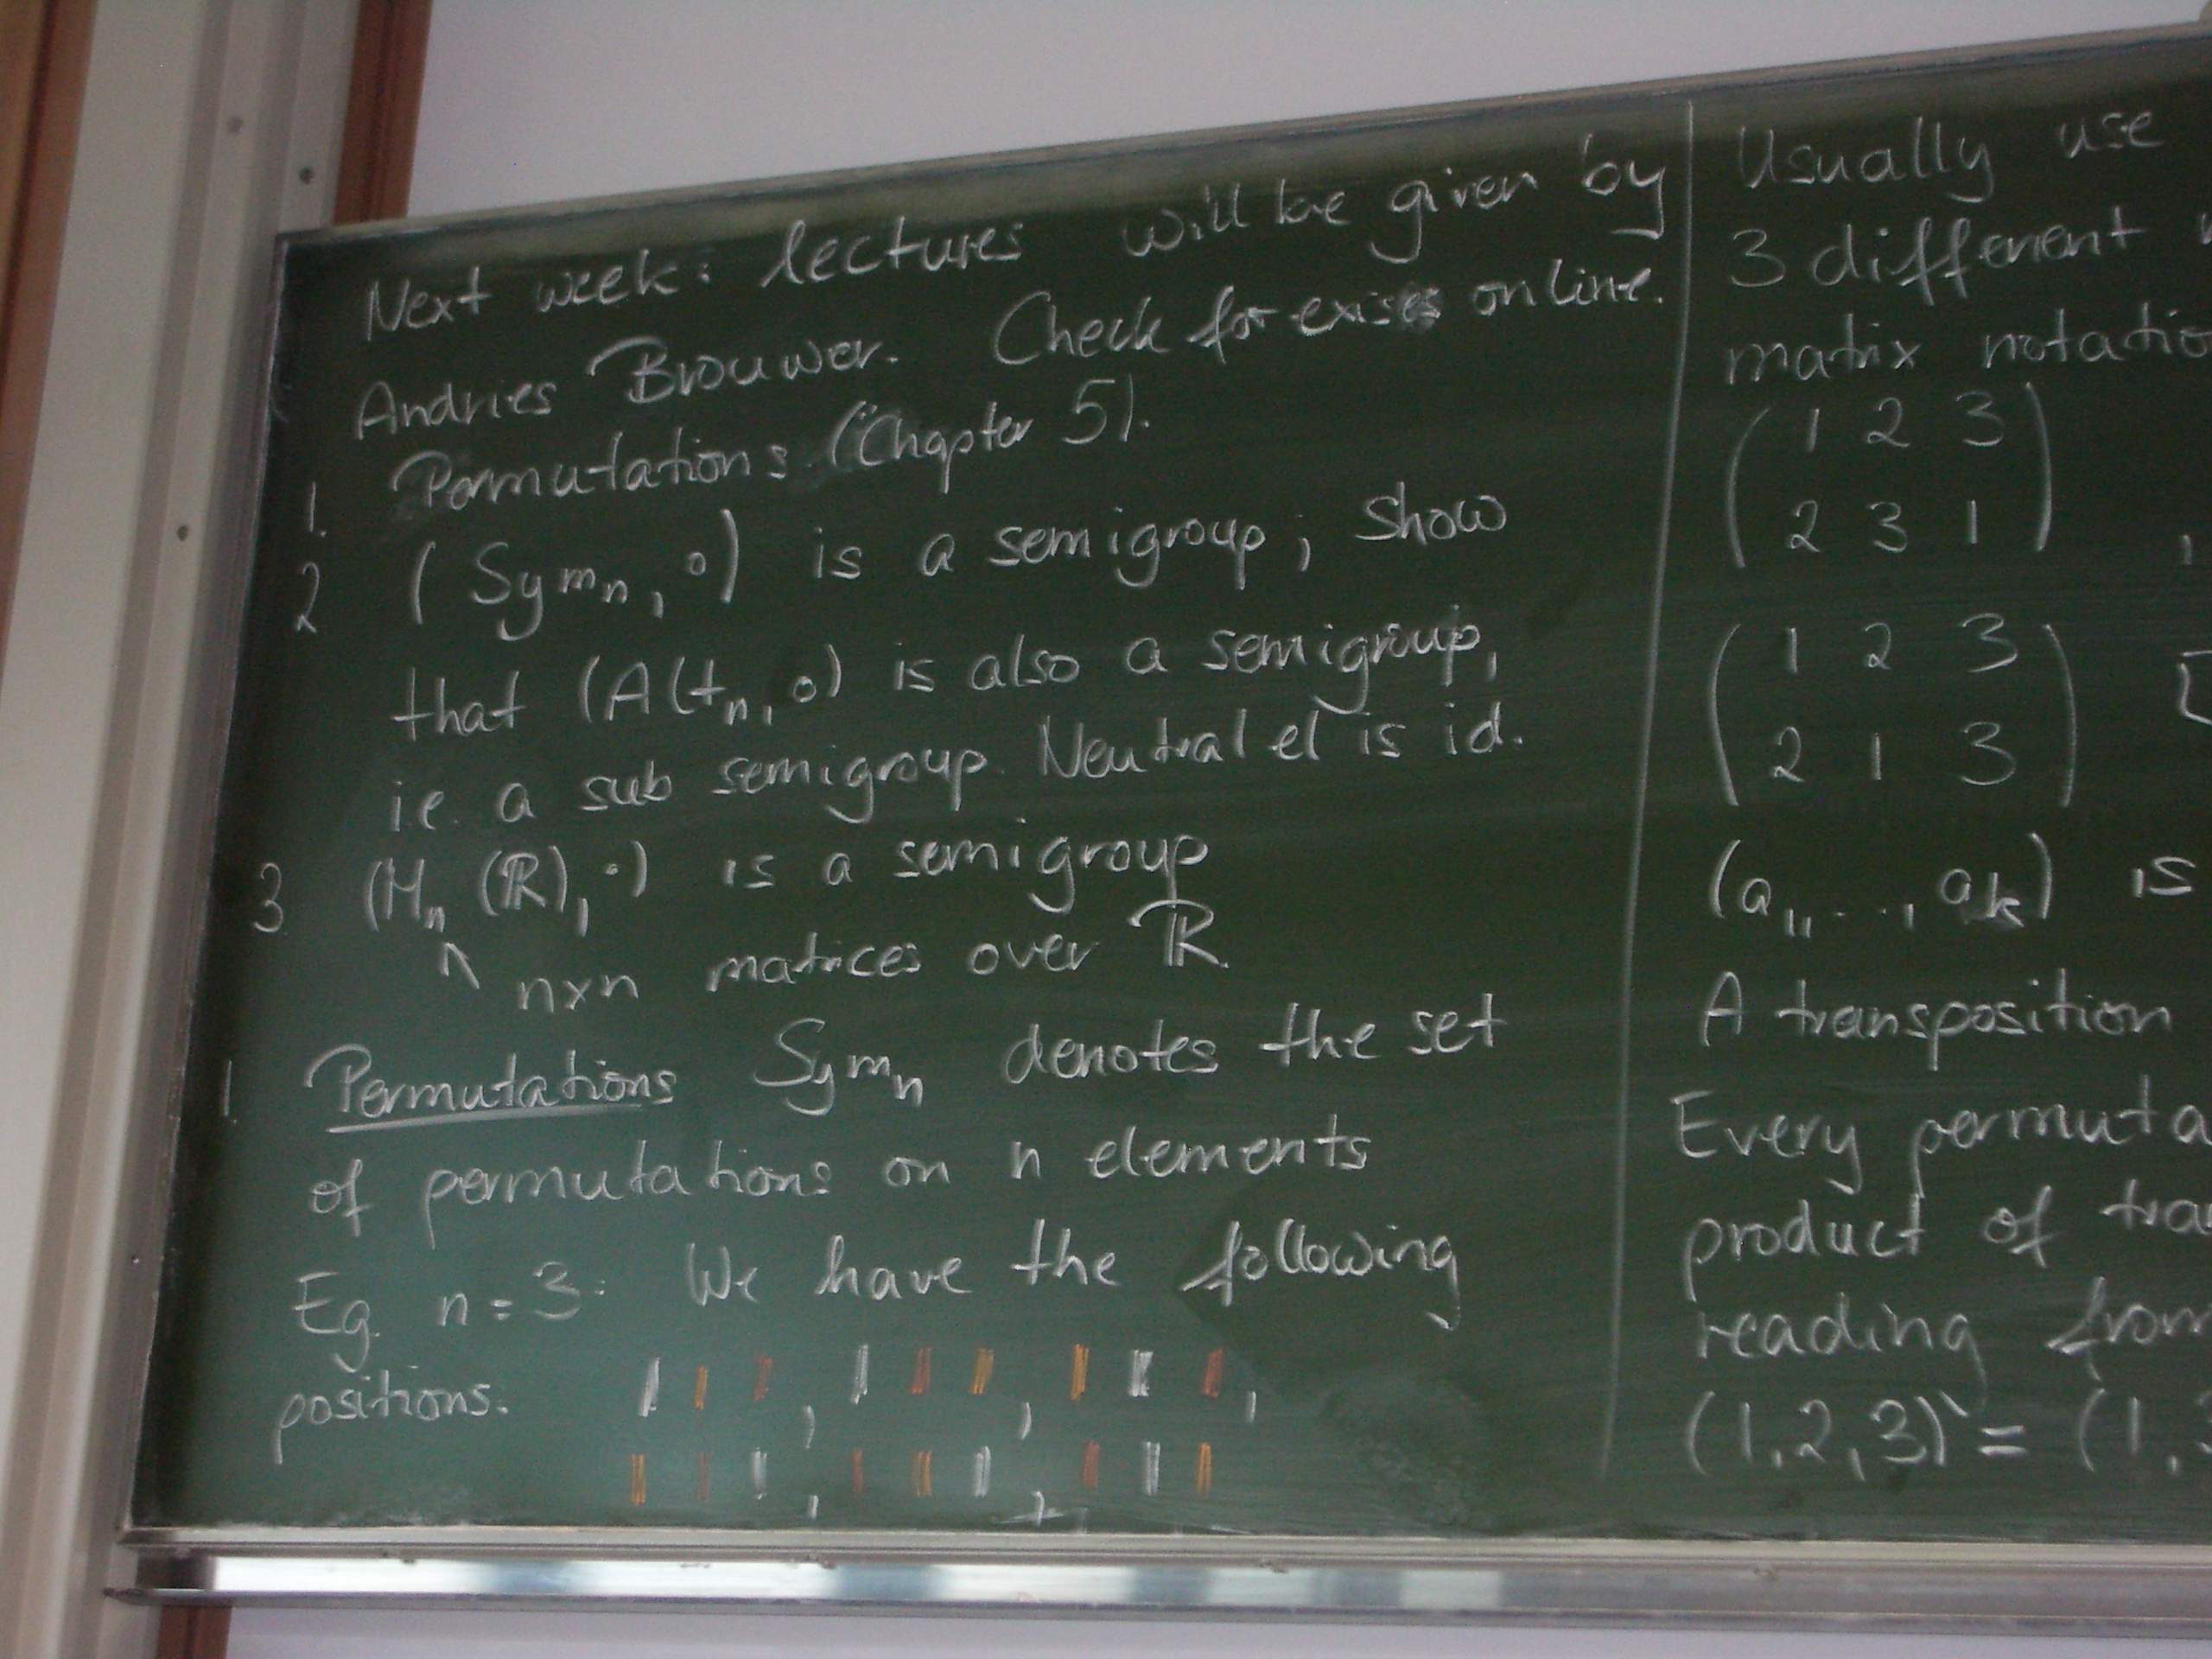 Next week: lectures will be given by
Andries Brouwer. Check for exises online.
1. Permutations (Chapter 5).
2 (Symₙ, ∘) is a semigroup; show
that (Altₙ, ∘) is also a semigroup,
i.e. a sub semigroup. Neutral el is id.
3 (Mₙ(ℝ), ·) is a semigroup
↖ n×n matrices over ℝ
1 Permutations Symₙ denotes the set
of permutations on n elements
Eg. n = 3: We have the following
positions:
Usually use
3 different
matrix notatio
( 1 2 3 )
( 2 3 1 ) ,
( 1 2 3 )
( 2 1 3 ) [
(a₁, ..., aₖ) is
A transposition
Every permuta
product of tra
reading from
(1,2,3) = (1,